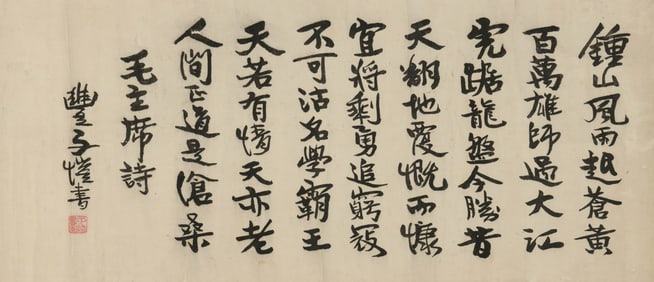 鍾山風雨起蒼黃
百萬雄師過大江
虎踞龍盤今勝昔
天翻地覆慨而慷
宜將剩勇追窮寇
不可沽名學霸王
天若有情天亦老
人間正道是滄桑
毛主席詩
豐子愷書